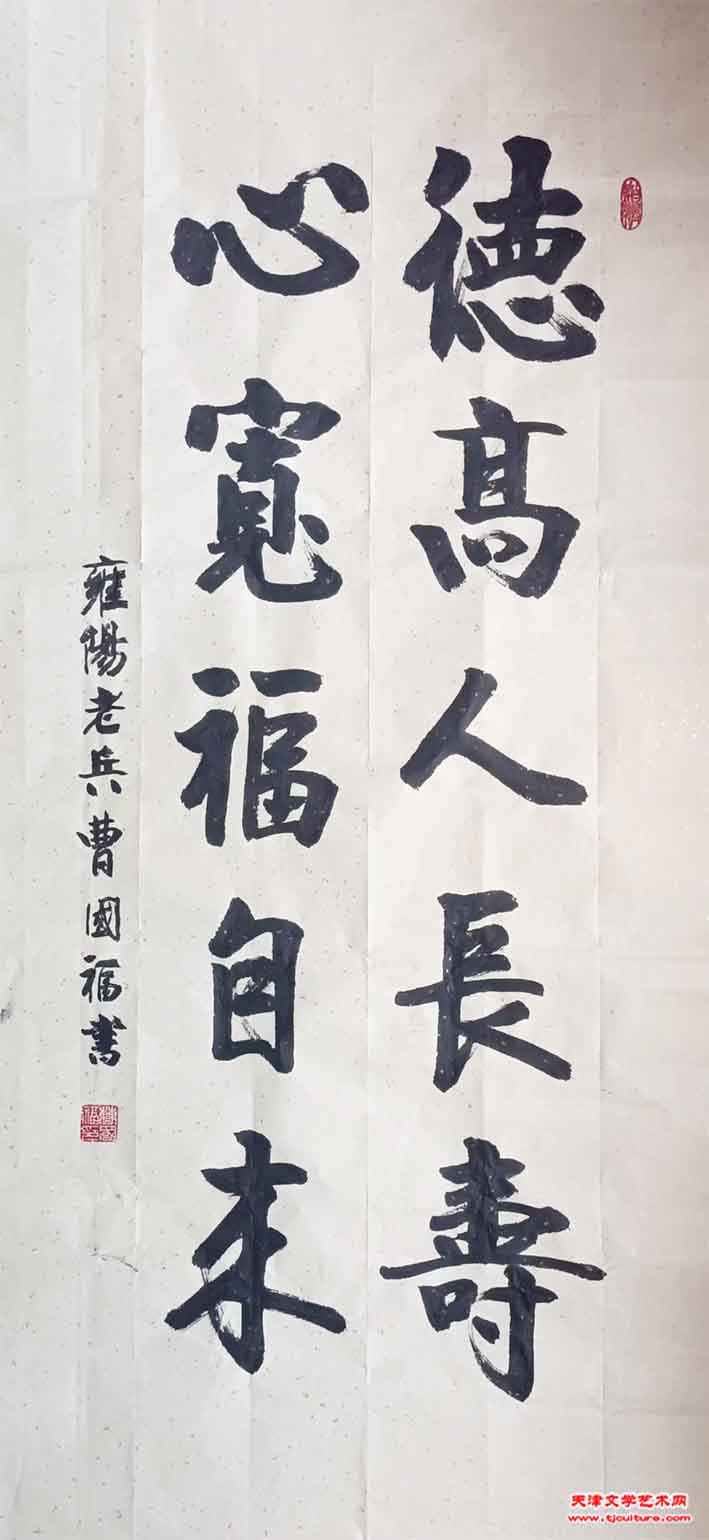 德高人長壽
心寬福自来
雍陽老兵曹國福書
天津文学艺术网
www.tjculture.com